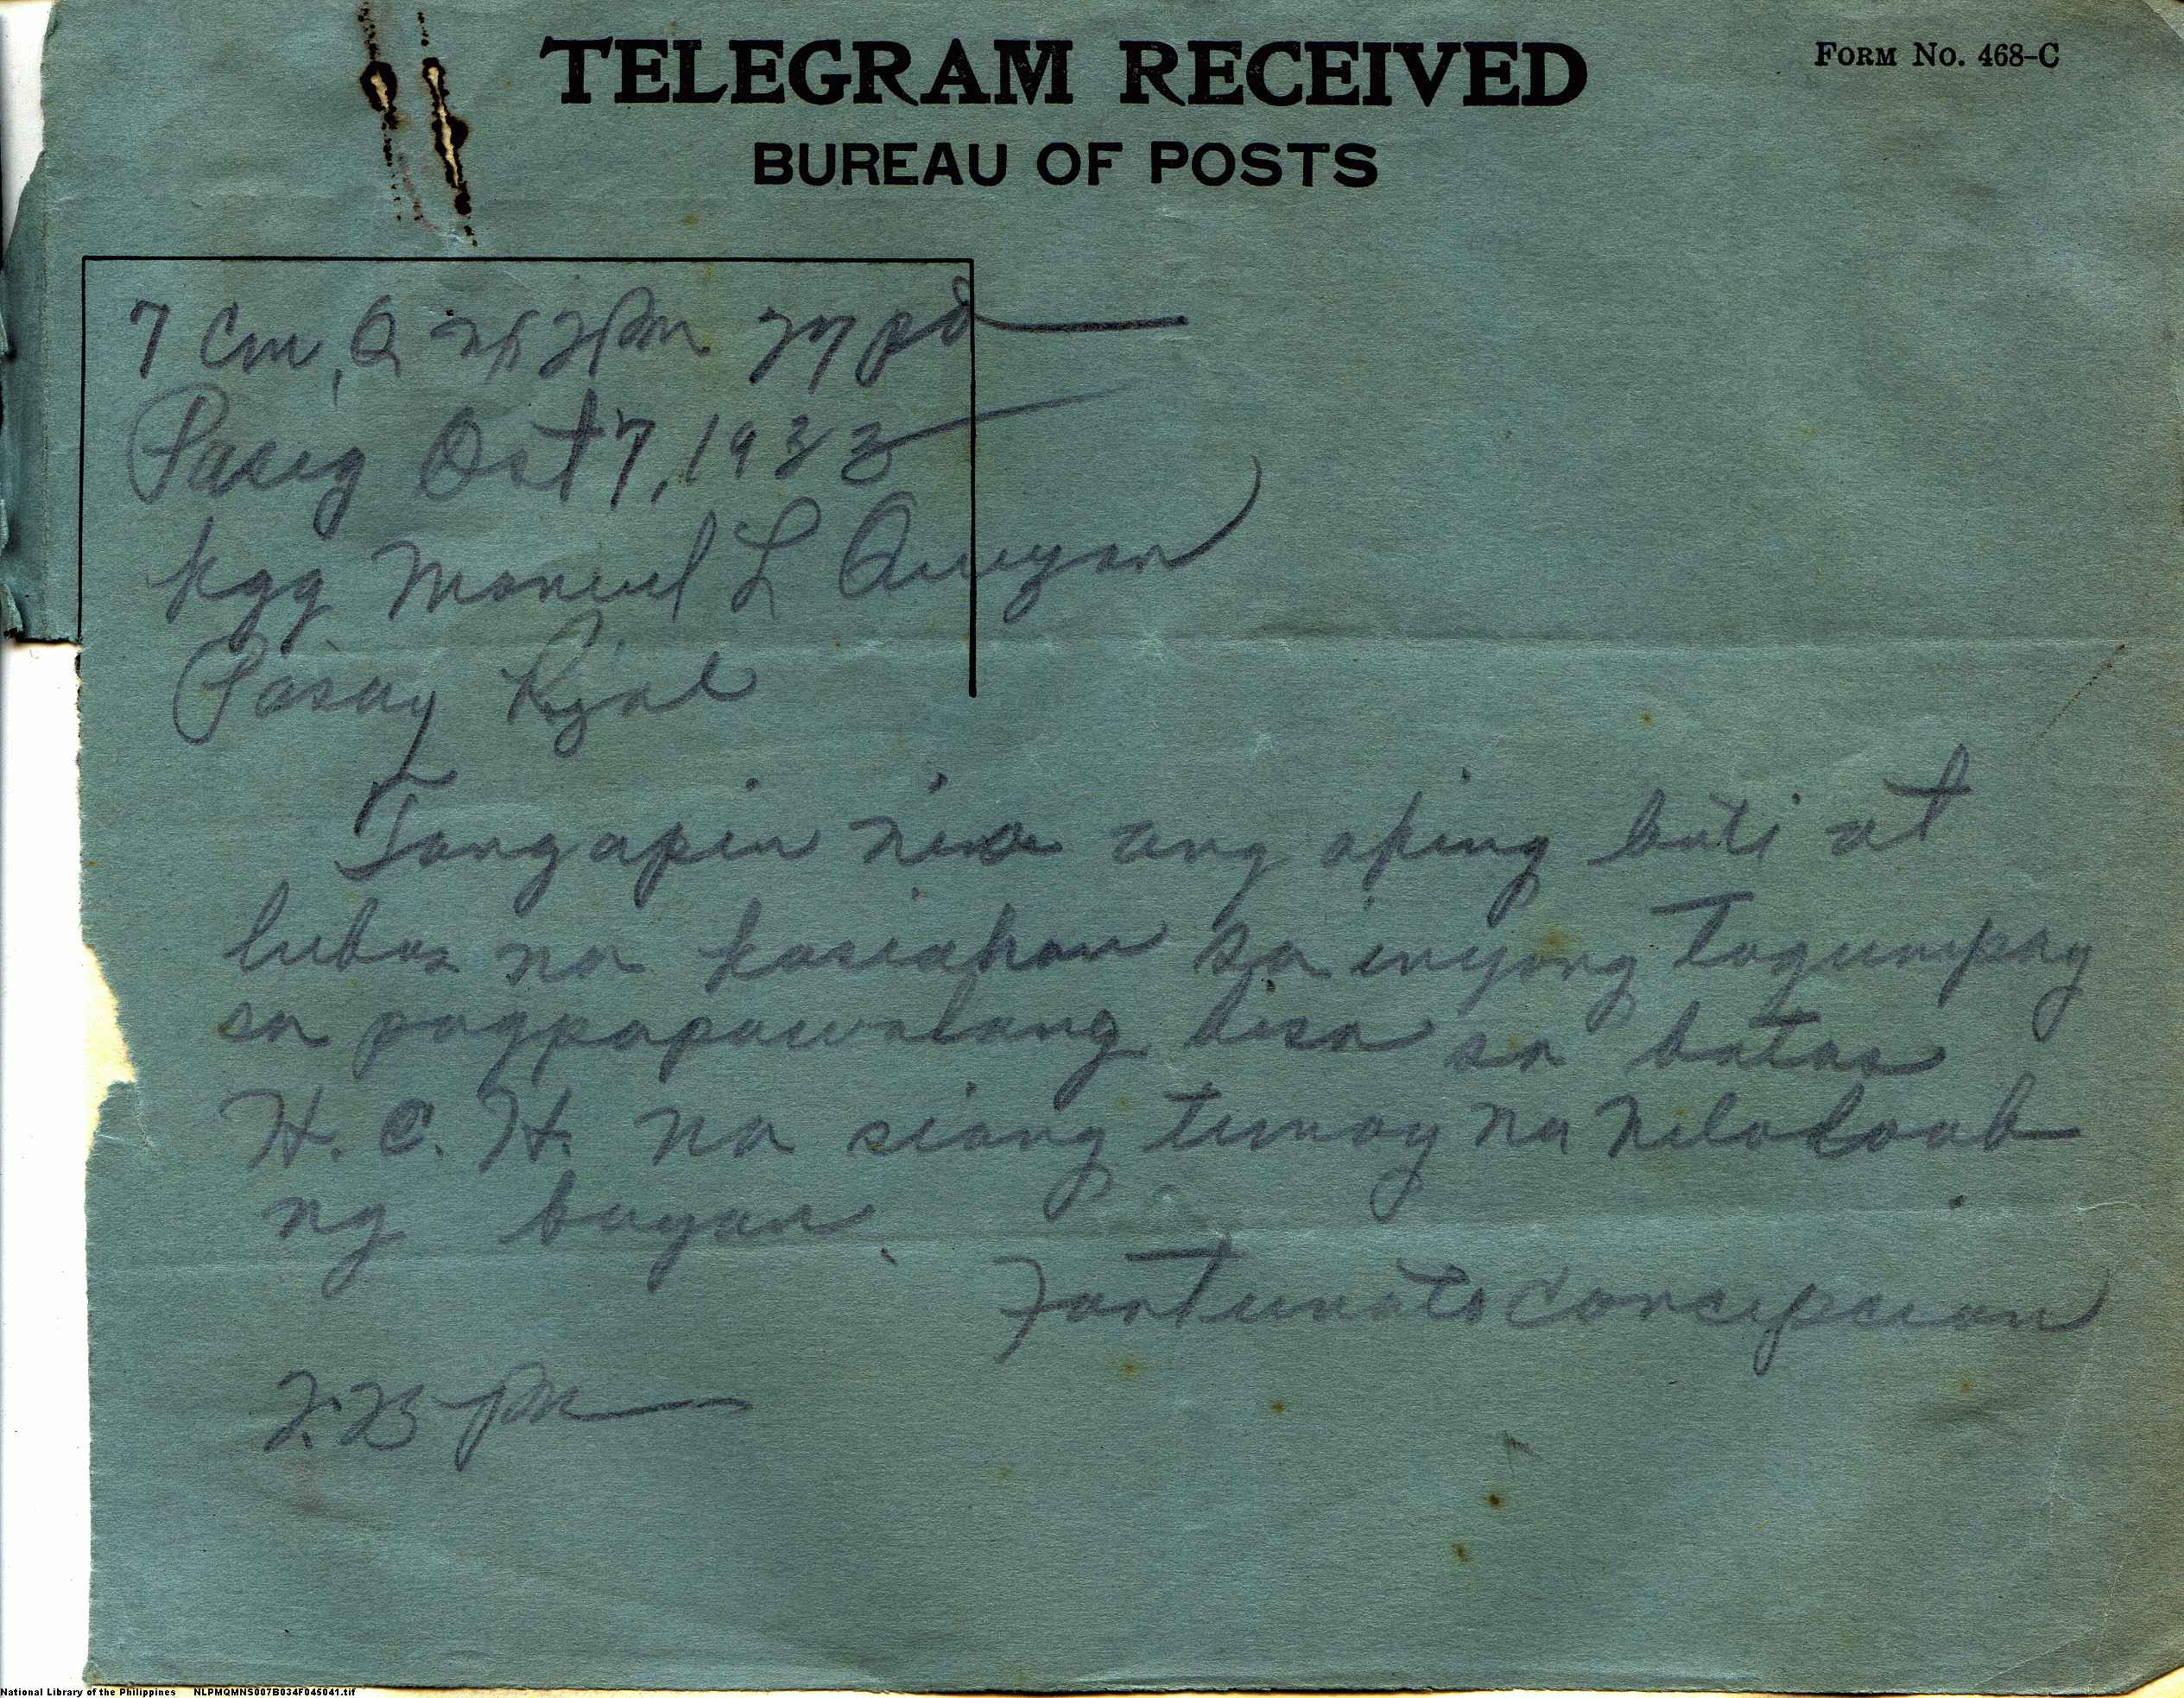 TELEGRAM RECEIVED
FORM No. 468-C
BUREAU OF POSTS
7 Cm, Q 2PM 27 pd
Pasig Oct 7, 1933
Kgg Manuel L Quezon
Pasay Rizal
Tangapin nino ang aking bati at
lubos na kasiahan sa inyong Tagumpay
sa pagpapawalang bisa sa batas
H. C. H. na siang tunay na niloloob
ng bayan.
Fortunato Concepcion
2:23 pm
National Library of the Philippines NLPMQMNS007B034F045041.tif